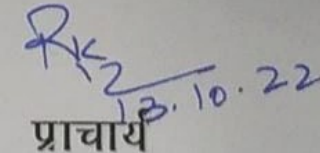 13.10.22
प्राचार्य